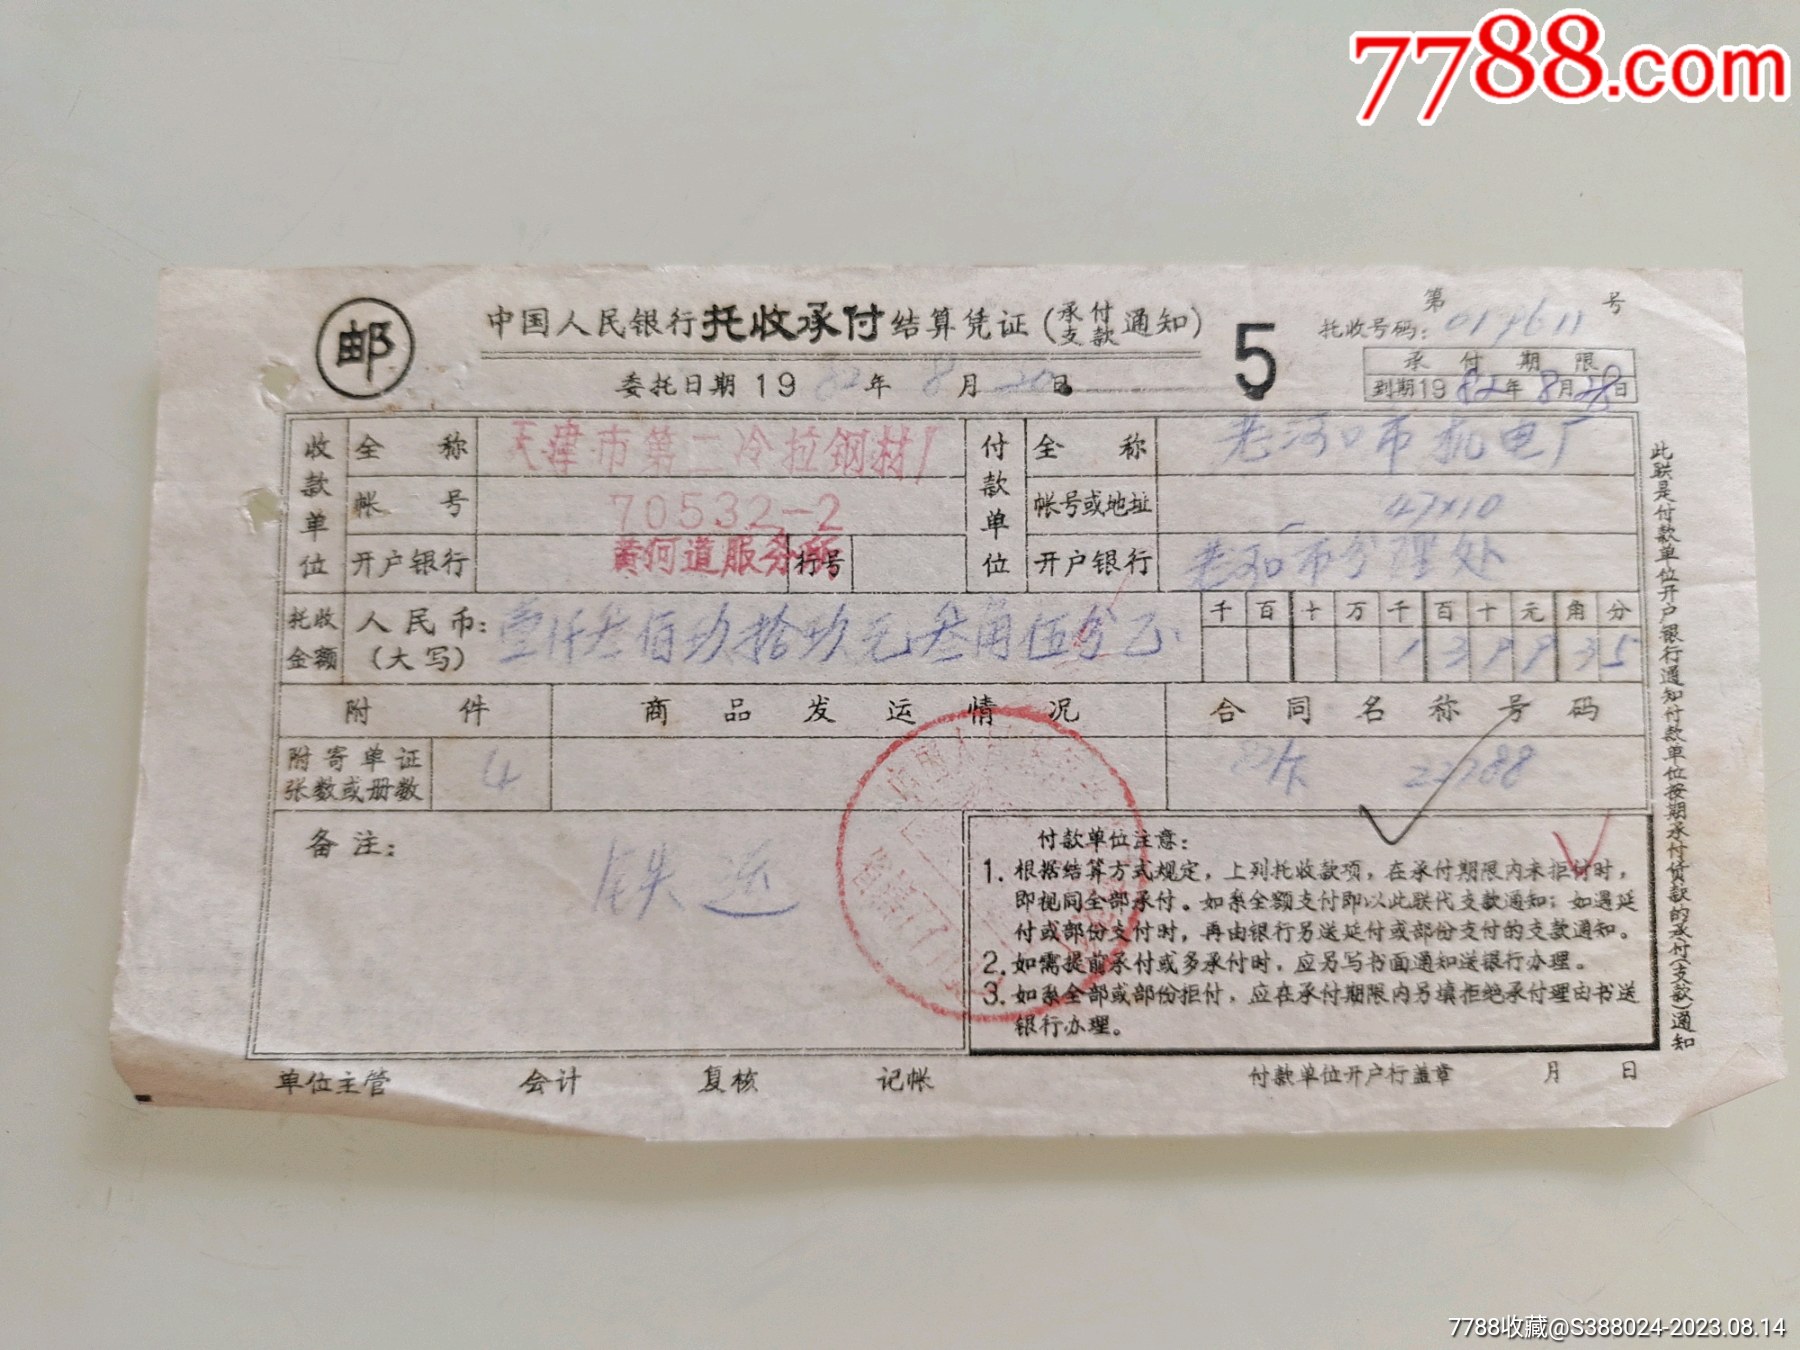 7788.com
邮
中国人民银行托收承付结算凭证(承付支款通知)
5
第 号
托收号码:
委托日期1982年8月20日
承付期限
到期1982年8月28日
收款单位
全称 天津市第二冷拉钢材厂
帐号 70532-2
开户银行 黄河道服务所 行号
付款单位
全称 老河口市机电厂
帐号或地址 47×10
开户银行 老河口市分理处
托收金额
人民币:(大写) 壹仟叁佰玖拾玖元叁角伍分正
千百十万千百十元角分
1 3 9 9 3 5
附件 商品发运情况 合同名称号码
附寄单证张数或册数 4
22288
备注:
铁运
付款单位注意:
1.根据结算方式规定,上列托收款项,在承付期限内未拒付时,
即视同全部承付。如系全额支付即以此联代支款通知;如遇延
付或部份支付时,再由银行另送延付或部份支付的支款通知。
2.如需提前承付或多承付时,应另写书面通知送银行办理。
3.如系全部或部份拒付,应在承付期限内另填拒绝承付理由书送
银行办理。
此联是付款单位开户银行通知付款单位按期承付货款的承付(支款)通知
单位主管 会计 复核 记帐 付款单位开户行盖章 月 日
7788收藏@S388024-2023.08.14